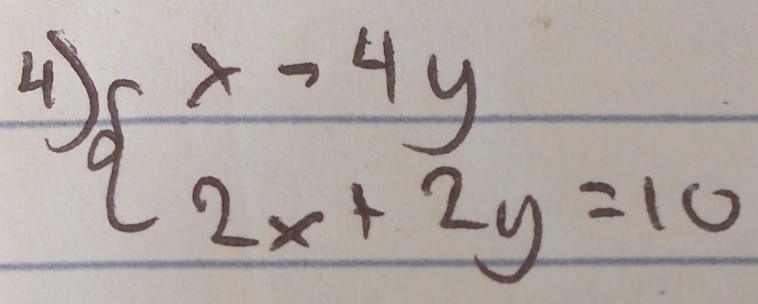 4) { x - 4y
2x + 2y = 10